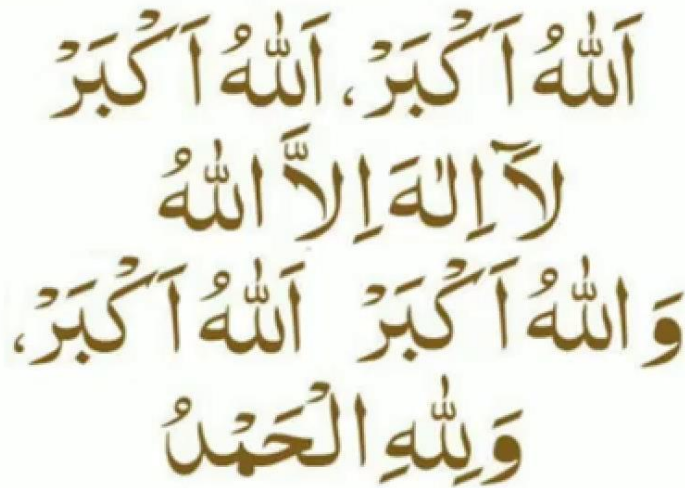 اَللّٰهُ اَكْبَرْ، اَللّٰهُ اَكْبَرْ
لَآ اِلٰهَ اِلَّا اللّٰهُ
وَاللّٰهُ اَكْبَرْ اَللّٰهُ اَكْبَرْ،
وَلِلّٰهِ الْحَمْدُ